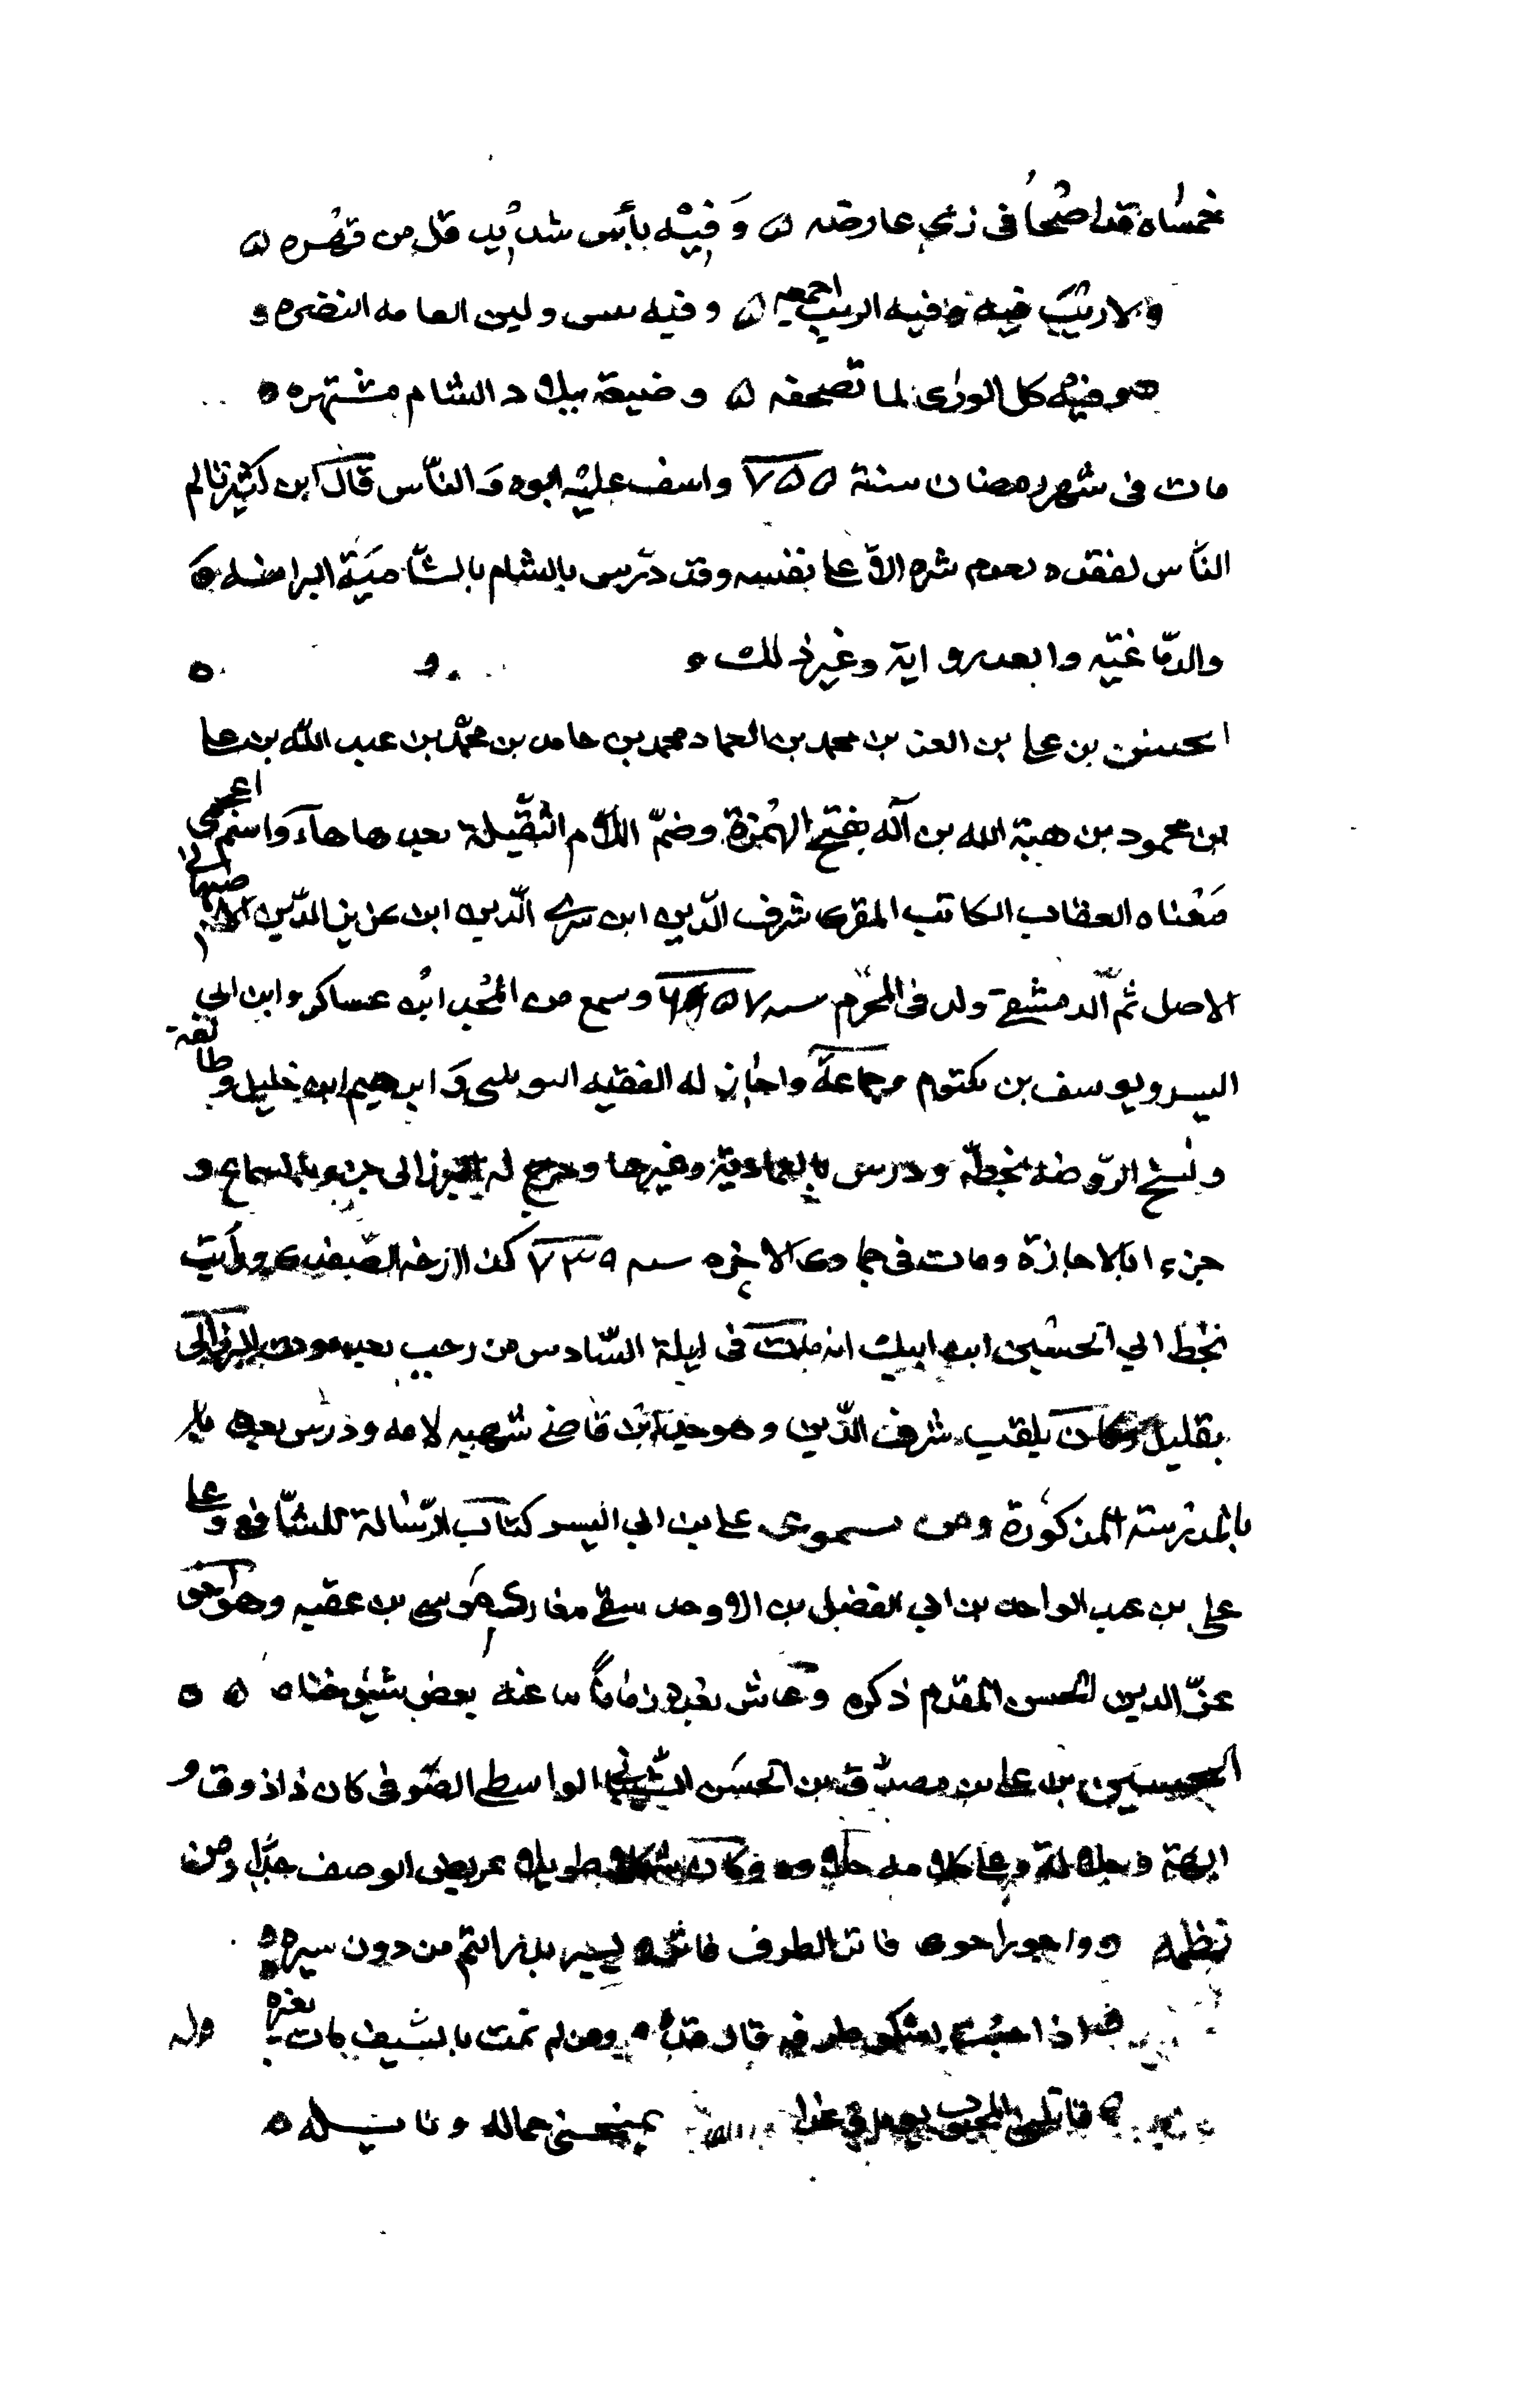 خمساه قد اضحا في زي عارضه ٥ وَفِيْه بأس شديد قل من قهره ٥
ولا ريب فيه وفيه الريب اجمعه ٥ وفيه يبس ولين القامه النضره و
وفيه كل الورى لما تصحفه ٥ وضيعة ببلاد الشام مشتهره ٥
مات في شهر رمضان سنة ٧٥٥ واسف عليه ابوه وَالنّاس قال ابن كثير تالم
النّاس لفقده بعدم شره الا على نفسه وقد درّس بالشام بالشّاميّة البرانيه
والدّماغيّه وابعد رواية وغير ذلك
الحسين بن علي بن العز بن محمد بن العماد محمد بن حامد بن محمّد بن عبد الله بن علي
بن محمود بن هبة الله بن آله بفتح الهمزة وضمّ اللام الثقيلة بعدها هاء واسم اعجمي
مَعْناه العقاب الكاتب المقرى شرف الدّين ابن سري الدّين ابن عز الدّين الاصبهاني
الاصل ثمّ الدمشقي ولد في المحرّم سنه ٦٥٧ وسمع من المجد ابن عساكر وابن ابي
اليسر ويوسف بن مكتوم وجماعة واجاز له الفقيه اليونيني وَابرهيم ابن خليل وطائفة
ونسخ الرّوضه بخطه ودرس بالعمادية وغيرها وخرج له البرزالي جزوا بالسماع و
جزءا بالاجازة ومات في جمادى الاخره سنه ٧٣٩ كذا ارخه الصّفدي ورايت
بخط ابي الحسين ابن ايبك انه مات في ليلة السّادس من رجب بعد موت البرزالي
بقليل وكان يلقب شرف الدّين وهو جد ابن قاضي شهبه لامه ودرس بعده
بالمدرسته المذكورة ومن مسموعه على بن ابي اليسر كتاب الرّسالة للشّافعي وعلى
علي بن عبد الواحد بن ابي الفضل بن الاوحد مغازي موسى بن عقبه وهو اخو
عزّ الدين الحسن المقدم ذكره وعاش بعده زمانا عنه بعض شيوخنا ٥ ٥
الحسين بن علي بن مصدّق بن الحسَن الشيباني الواسطي الصّوفي كان ذا ذوق و
ابهة وجلالة وعلى كلامه حلاوه وكان شكلا طويلا عريض الوصف جدا ومن
نظمه واحور احوى فاتن الطرف فاتر يسير بدر التم من دون سيره
قال قده ومن لم يمت بالسيف مات بغيره وله
قاتلي يمنحني جماله ٥